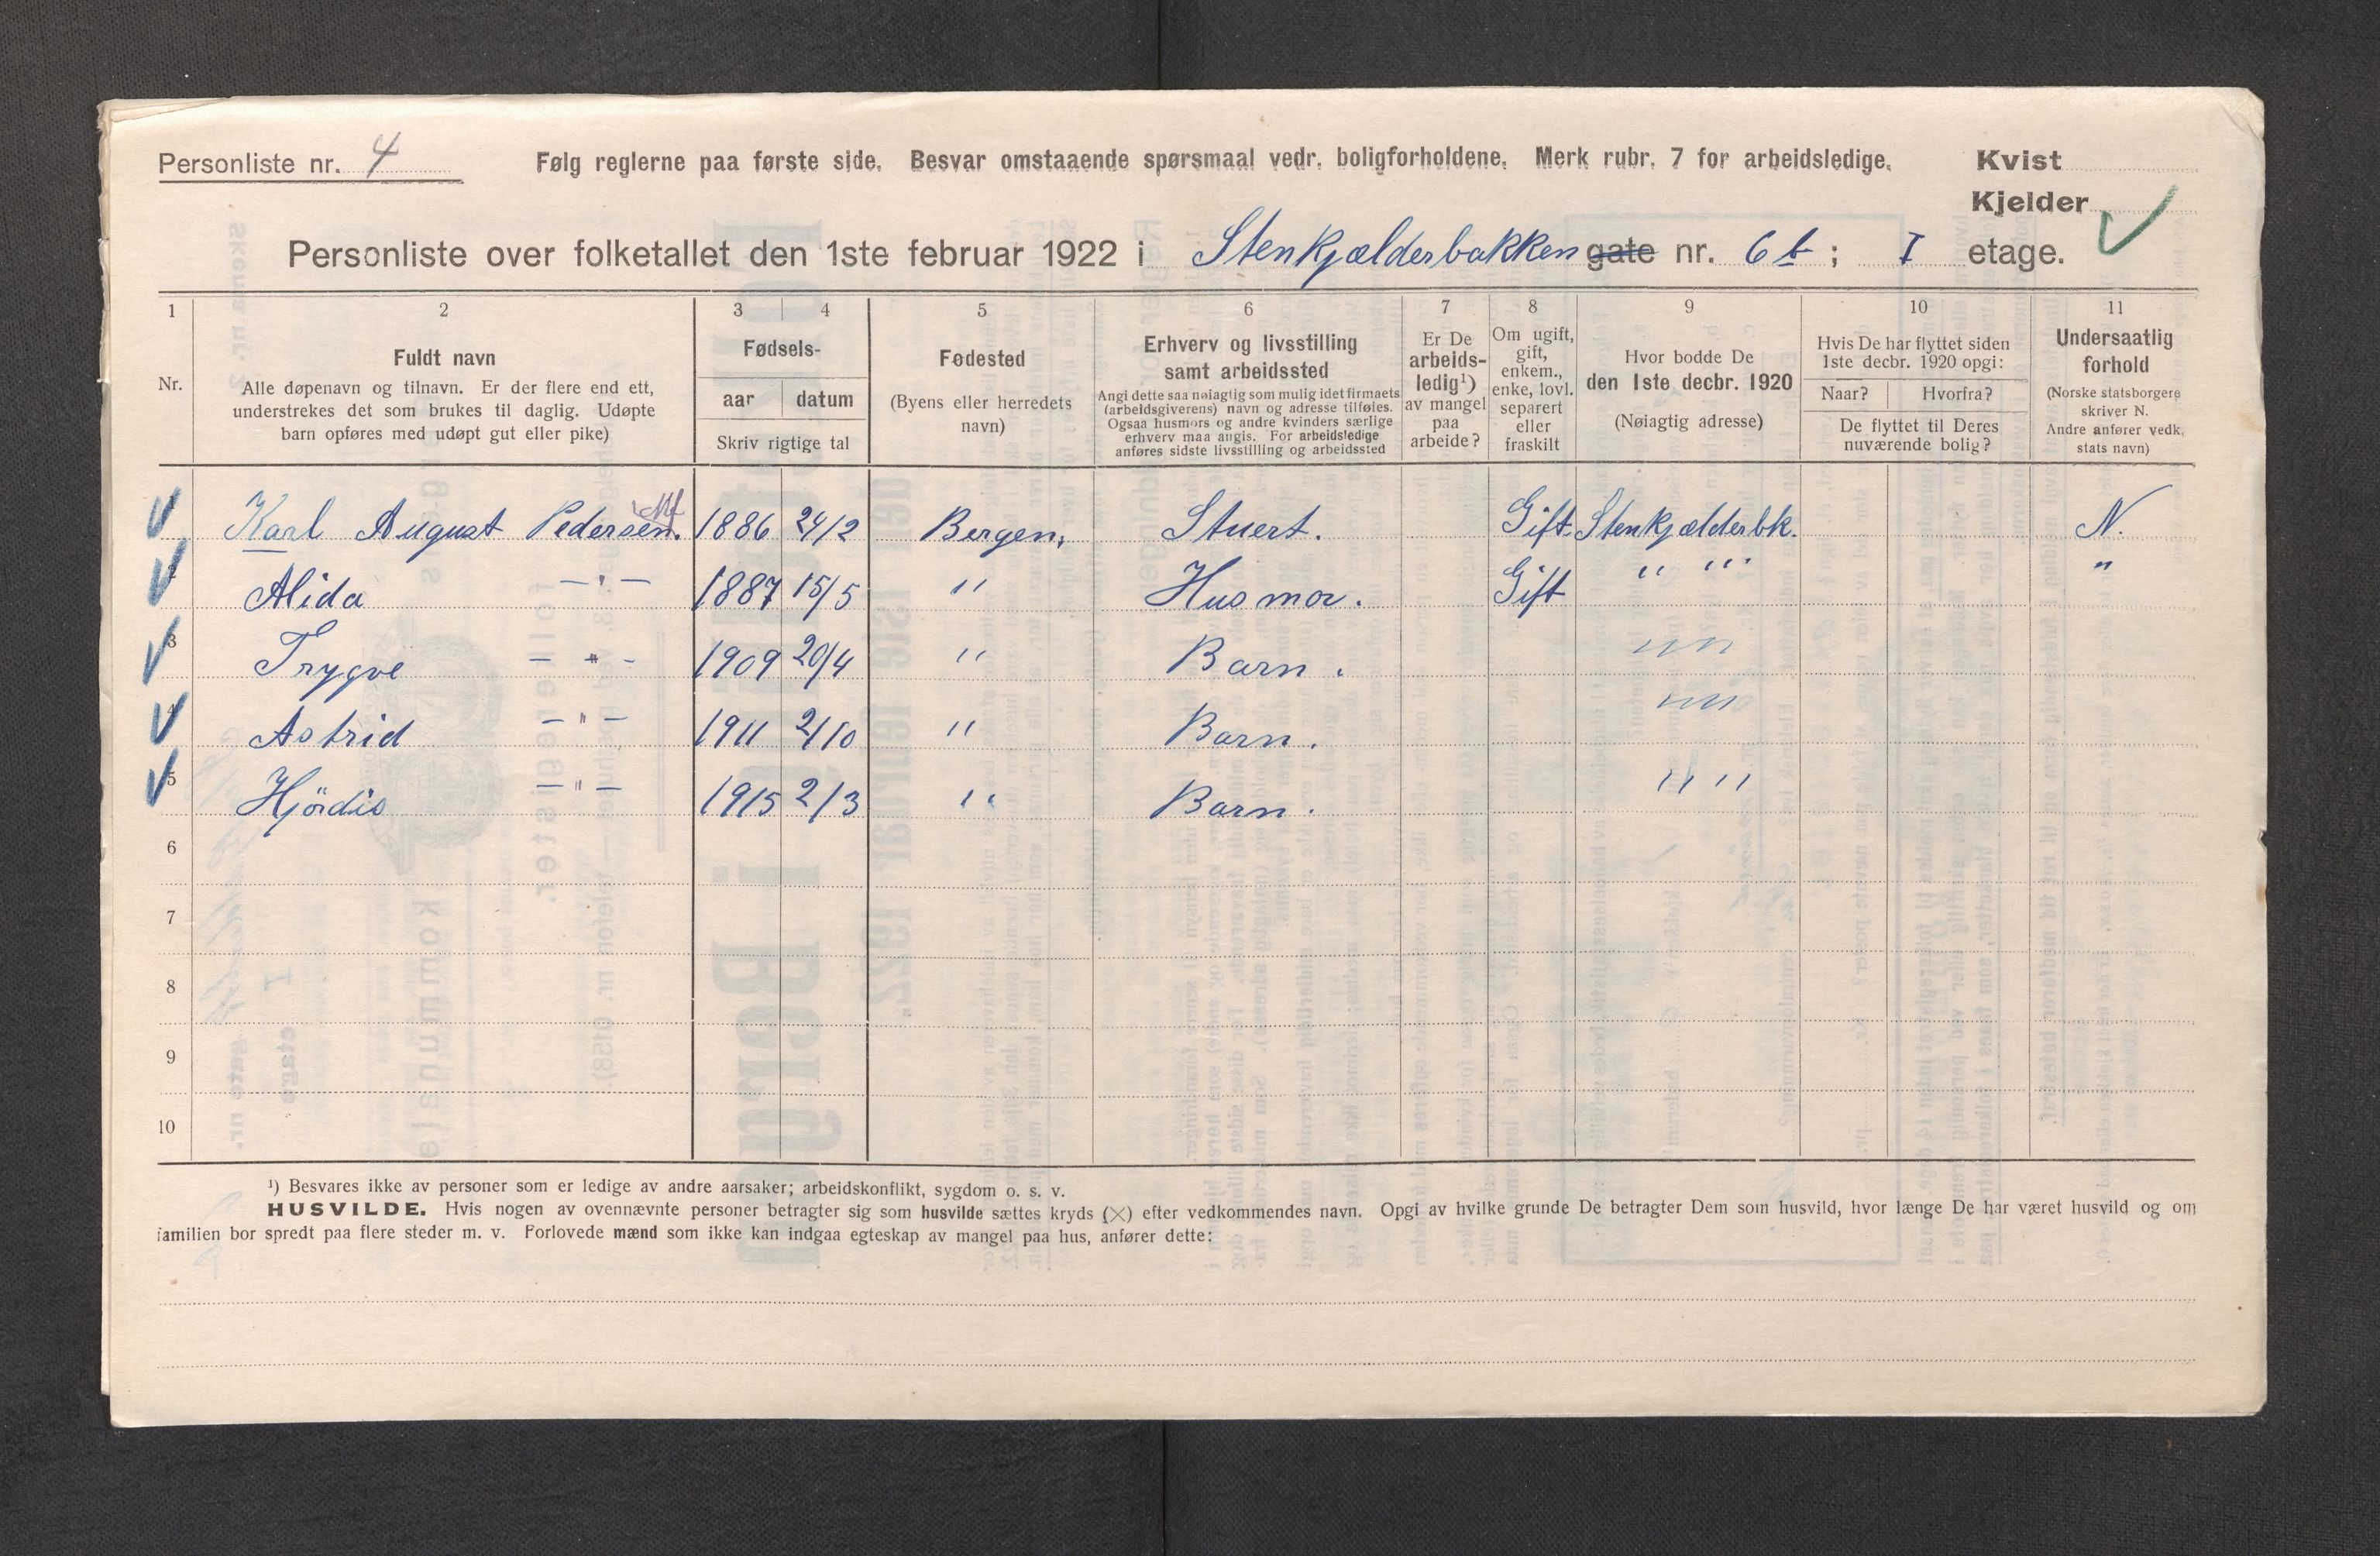 Personliste nr. 4 Følg reglerne paa første side. Besvar omstaaende spørsmaal vedr. boligforholdene. Merk rubr. 7 for arbeidsledige. Kvist
Kjelder
Personliste over folketallet den 1ste februar 1922 i Stenkjælderbakken gate nr. 6b; I etage.
1 2 3 4 5 6 7 8 9 10 11
Nr.
Fuldt navn
Alle døpenavn og tilnavn. Er der flere end ett,
understrekes det som brukes til daglig. Udøpte
barn opføres med udøpt gut eller pike)
Fødsels-
aar datum
Skriv rigtige tal
Fødested
(Byens eller herredets
navn)
Erhverv og livsstilling
samt arbeidssted
Angi dette saa nøiagtig som mulig idet firmaets
(arbeidsgiverens) navn og adresse tilføies.
Ogsaa husmors og andre kvinders særlige
erhverv maa angis. For arbeidsledige
anføres sidste livsstilling og arbeidssted
Er De
arbeids-
ledig¹)
av mangel
paa
arbeide?
Om ugift,
gift,
enkem.,
enke, lovl.
separert
eller
fraskilt
Hvor bodde De
den 1ste decbr. 1920
(Nøiagtig adresse)
Hvis De har flyttet siden
1ste decbr. 1920 opgi:
Naar? Hvorfra?
De flyttet til Deres
nuværende bolig?
Undersaatlig
forhold
(Norske statsborgere
skriver N.
Andre anfører vedk.
stats navn)
Karl August Pedersen. 1886 24/2 Bergen. Stuert. Gift. Stenkjælderbk. N.
2 Alida — " — 1887 15/5 " Husmor. Gift " " "
3 Trygve — " — 1909 20/4 " Barn. " "
4 Astrid — " — 1911 2/10 " Barn. " "
5 Hjördis — " — 1915 2/3 " Barn. " "
6
7
8
9
10
¹) Besvares ikke av personer som er ledige av andre aarsaker; arbeidskonflikt, sygdom o. s. v.
HUSVILDE. Hvis nogen av ovennævnte personer betragter sig som husvilde sættes kryds (×) efter vedkommendes navn. Opgi av hvilke grunde De betragter Dem som husvild, hvor længe De har været husvild og om
familien bor spredt paa flere steder m. v. Forlovede mænd som ikke kan indgaa egteskap av mangel paa hus, anfører dette: